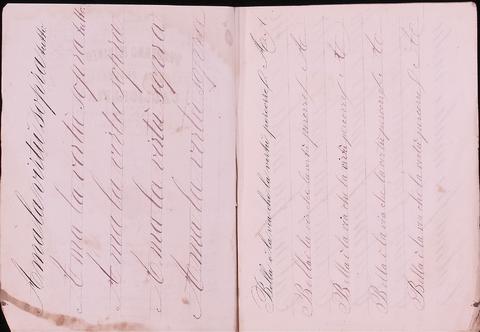 Ama la virtù sopra tutto
Ama la virtù sopra tutto
Ama la virtù sopra
Ama la virtù sopra
Ama la virtù sopra
Bella è la via che la virtù
Bella è la via che la virtù
Bella è la via che la virtù
Bella è la via che la virtù
Bella è la via che la virtù